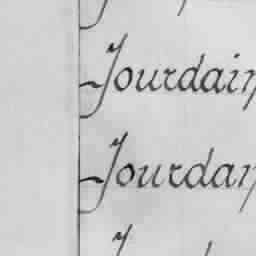 Jourdain
Jourdan